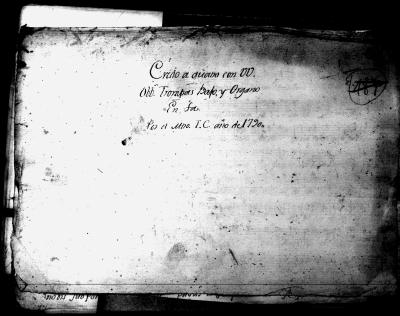 Credo a quatro con VV.
Obs. Trompas Bajo, y Organo
En Fa.
Por el Mro. T. C. año de 1790.